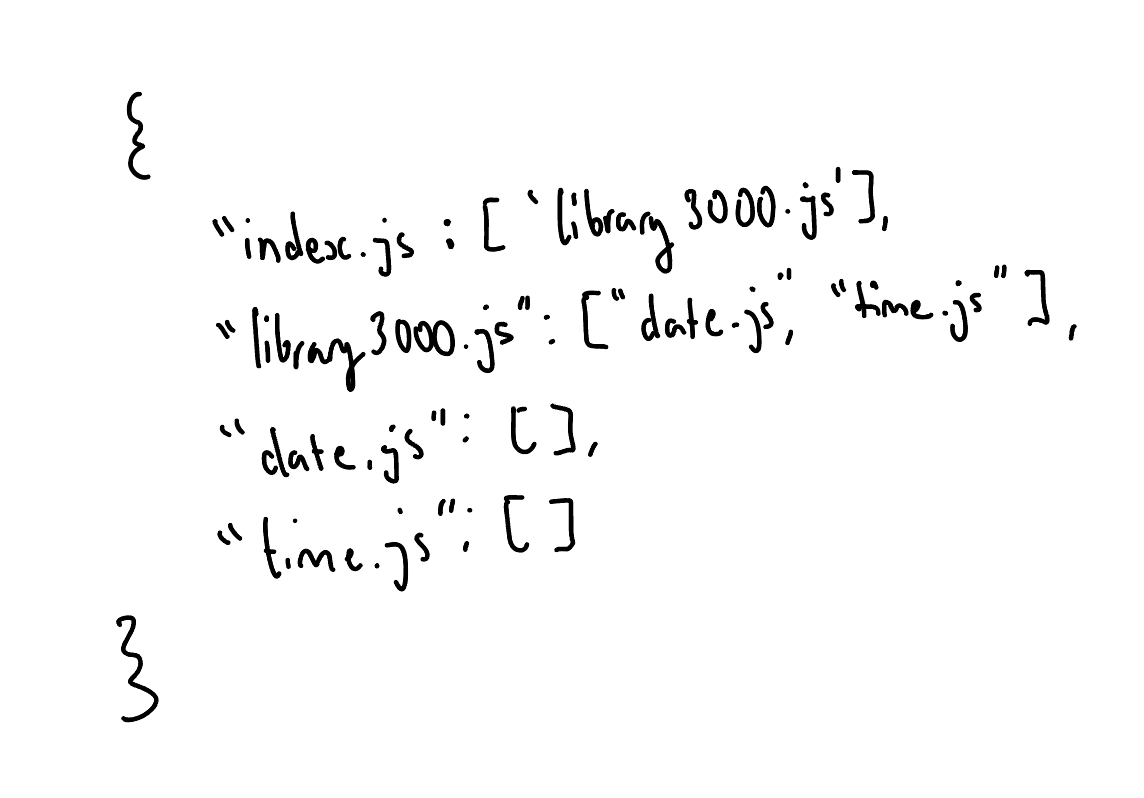 {
"index.js : ['library3000.js'],
"library3000.js": ["date.js", "time.js"],
"date.js": [],
"time.js": []
}